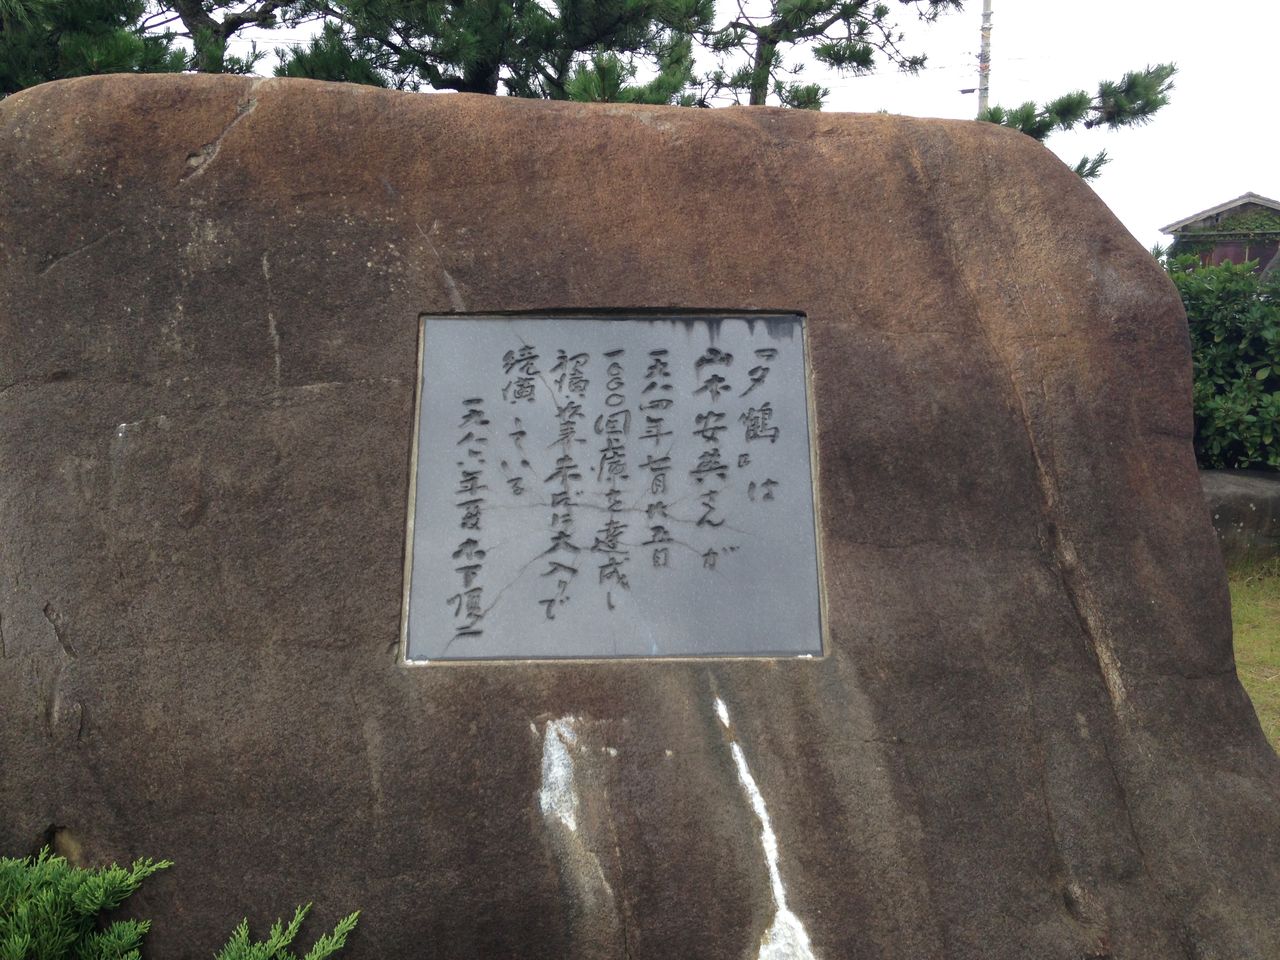 「夕鶴」は
山本安英さんが
一九八四年七月廿五日
一〇〇〇回上演を達成し
初演以来未だに大入りで
続演している
一九八六年夏 木下順二